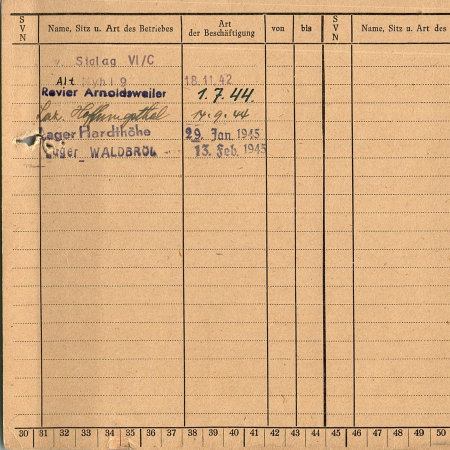 S V N Name, Sitz u. Art des Betriebes Art der Beschäftigung von bis S V N Name, Sitz u. Art des
v. Stalag VI/C
18.11.42
Revier Arnoldsweiler 1.7.44.
Laz. Hoffnungsthal 14.9.44
Lager Hardthöhe 29. Jan. 1945
Lager WALDBRÖL 13. Feb. 1945
30 31 32 33 34 35 36 37 38 39 40 41 42 43 44 45 46 47 48 49 50